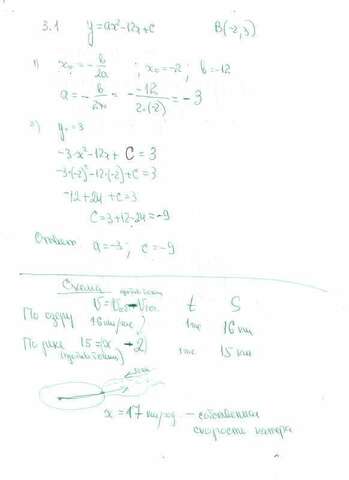 3.1 y=ax²-12x+c B(-2;3)
1) x₀ = -b/2a ; x₀=-2 ; b=-12
a = -b/2x₀ = - -12/2·(-2) = -3
2) y₀=3
-3·x²-12x+C=3
-3·(-2)²-12·(-2)+C=3
-12+24+C=3
C=3+12-24=-9
Ответ a=-3; c=-9
Схема
t S
По озеру 16 км/ч ? 1 час 16 км
По реке 15=(x-2) 1 час 15 км
x=17 км/год. - собственная
скорость катера